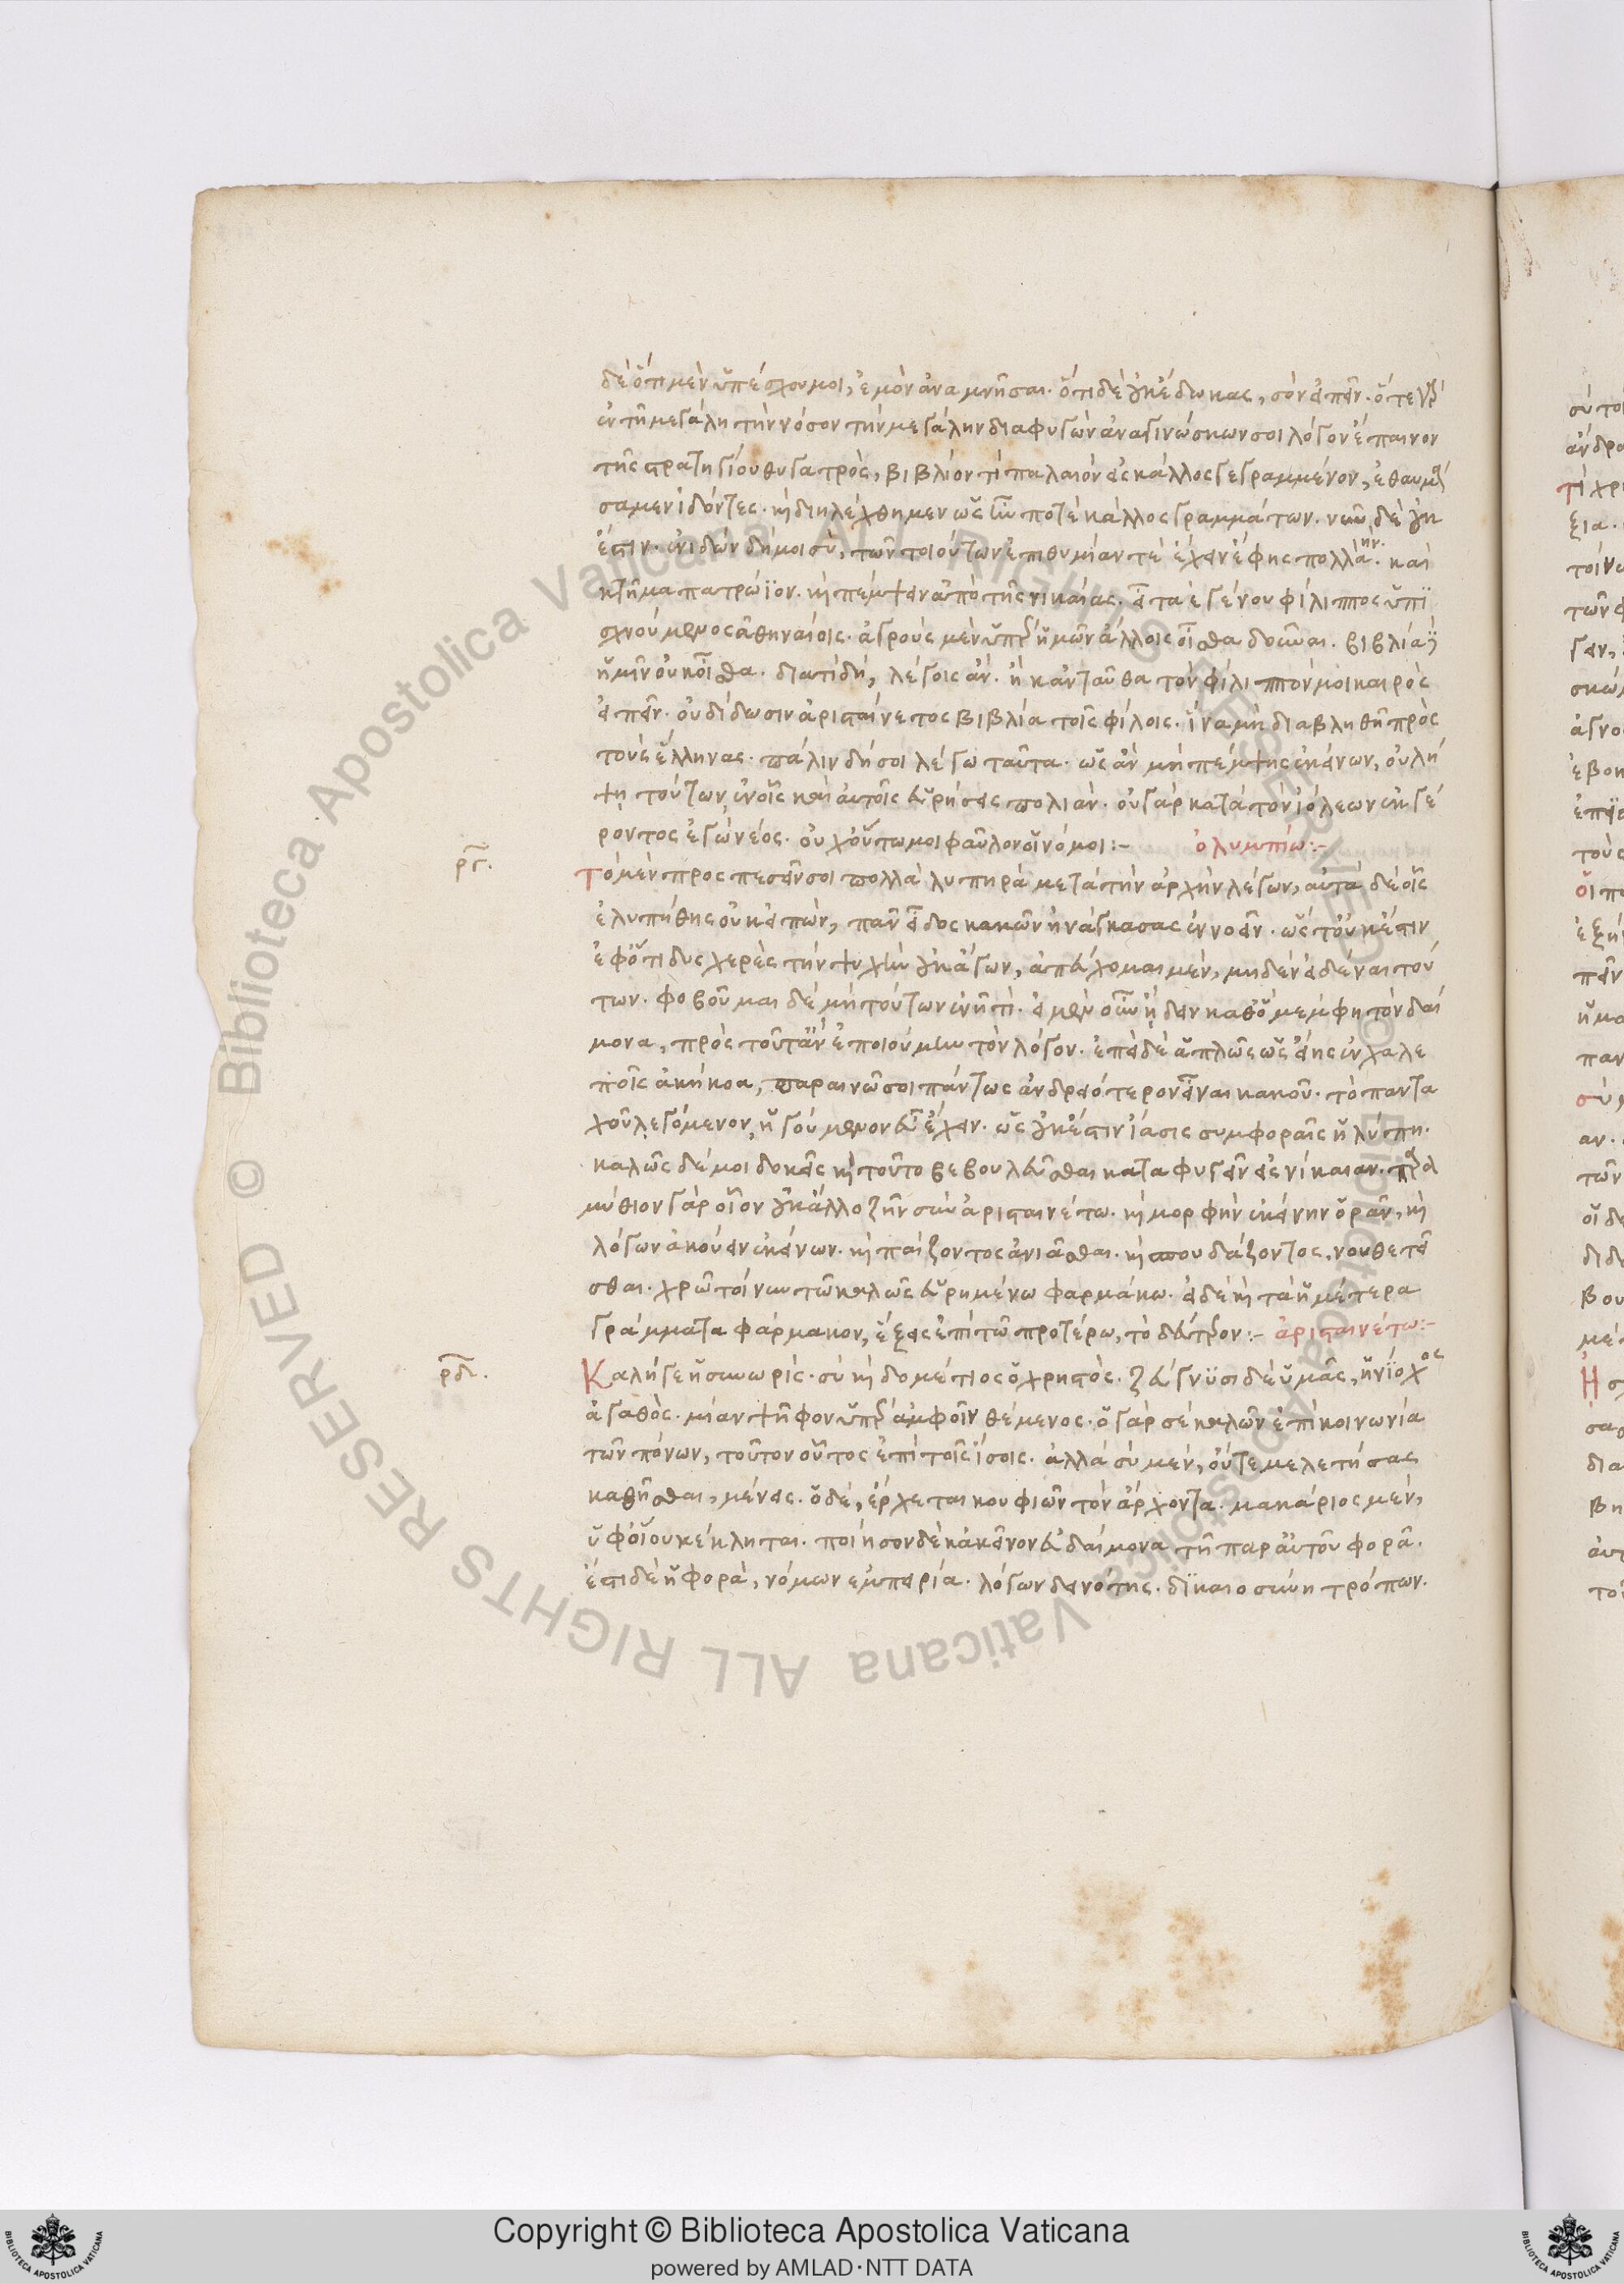 δὲ ὅτι μὲν ὑπέσχου μοι, ἐμὸν ἀναμνῆσαι. ὅτι δὲ οὐκ ἔδωκας, σὸν εἰπεῖν. ὅτε γὰρ
ἐν τῇ μεγάλῃ τὴν νόσον τὴν μεγάλην διαφυγὼν ἀναγινώσκων σοι λόγον ἔπαινον
τῆς στρατηγίου θυγατρὸς, βιβλίον τὶ παλαιὸν εἰς κάλλος γεγραμμένον, ἐθαυμά
σαμεν ἰδόντες. καὶ διηλέχθημεν ὡς ἦν ποτὲ κάλλος γραμμάτων. νῦν δὲ οὐκ
ἔστιν. ἐνιδὼν δή μοι σὺ, τῶν τοιούτων ἐπιθυμίαν τὲ ἔχειν ἔφης πολλήν. καὶ
κτῆμα πατρώϊον. καὶ πέμψειν ἀπὸ τῆς νικαίας. εἶτα ἐγένου φίλιππος ὑπϊ
σχνούμενος ἀθηναίοις. ἀγροὺς μὲν ὑπὲρ ἡμῶν ἄλλοις οἶσθα δοῦναι. βιβλία δὲ
ἡμῖν οὐκ οἶσθα. διατίδὴ, λέγοις ἄν. ἢ κἀνταῦθα τὸν φίλιππόν μοι καιρὸς
εἰπεῖν. οὐ δίδωσιν ἀρισταίνετος βιβλία τοῖς φίλοις. ἵνα μὴ διαβληθῇ πρὸς
τοὺς ἕλληνας. πάλιν δή σοι λέγω ταῦτα. ὡς ἂν μὴ πέμψῃς ἐκείνων, οὐ λή
ψῃ τούτων, ἐν οἷς καὶ αὐτοῖς εὑρήσεις πολιάν. οὐ γὰρ κατὰ τὸν ἰόλεων ἐκ γέ
ροντος ἐγὼ νέος. οὐχ οὕτω μοι φαῦλον οἱ νόμοι:- ὀλυμπίω:-
ργ.
Τὸ μὲν προσπεσεῖν σοι πολλὰ λυπηρὰ μετὰ τὴν ἀρχὴν λέγων, αὐτὰ δὲ οἷς
ἐλυπήθης οὐκ εἰπὼν, πᾶν εἶδος κακῶν ἠνάγκασας ἐννοεῖν. ὥς τ' οὐκ ἔστιν
ἐφ' ὅτι δυσχερὲς τὴν ψυχὴν οὐκ ἄγων, ἀπεύχομαι μὲν, μηδὲν εἰδέναι τού
των. φοβοῦμαι δὲ μὴ τούτων ἐνῇ τὶ. εἰ μὲν οὖν ᾔδειν καθ' ὃ μέμφῃ τὸν δαί
μονα, πρὸς τοῦτ' ἂν ἐποιούμην τὸν λόγον. ἐπεὶ δὲ ἁπλῶς ὡς εἴης ἐν χαλε
ποῖς ἀκήκοα, παραινῶ σοι πάντως ἀνδρειότερον εἶναι κακοῦ. τὸ παντα
χοῦ λεγόμενον, ἡγούμενον εὖ ἔχειν. ὡς οὐκ ἔστιν ἴασις συμφοραῖς ἡ λύπη.
καλῶς δέ μοι δοκεῖς καὶ τοῦτο βεβουλεῦσθαι καταφυγεῖν εἰς νίκαιαν. παρα
μύθιον γὰρ οἷον οὐκ ἄλλο ζῆν σὺν ἀρισταινέτω. καὶ μορφὴν ἐκείνην ὁρᾶν, καὶ
λόγων ἀκούειν ἐκείνων. καὶ παίζοντος ἀνιᾶσθαι. καὶ σπουδάζοντος, νουθετεῖ
σθαι. χρῶ τοίνυν τῶ καλῶς εὑρημένω φαρμάκω. εἰ δὲ καὶ τὰ ἡμέτερα
γράμματα φάρμακον, ἕξεις ἐπὶ τῶ προτέρω, τὸ δεύτερον:- ἀρισταινέτω:-
ρδ.
Καλή γε ἡ συνωρίς. σὺ καὶ δομέτιος ὁ χρηστός. ζεύγνϋσι δὲ ὑμᾶς, ἡνΐοχος
ἀγαθὸς. μίαν ψῆφον ὑπὲρ ἀμφοῖν θέμενος. ὁ γὰρ σὲ καλῶν ἐπὶ κοινωνία
τῶν πόνων, τοῦτον οὗτος ἐπὶ τοῖς ἴσοις. ἀλλὰ σὺ μὲν, οὔτε μελετήσας
καθῆσθαι, μένεις. ὁ δὲ, ἔρχεται κουφιῶν τὸν ἄρχοντα. μακάριος μὲν,
ὑφ' οἵου κέκληται. ποίησον δὲ κἀκεῖνον εὐδαίμονα τῇ παρ' αὐτοῦ φορᾶ.
ἔστι δὲ ἡ φορὰ, νόμων ἐμπειρία. λόγων δεινότης. δϊκαιοσύνη τρόπων.
Copyright © Biblioteca Apostolica Vaticana
powered by AMLAD·NTT DATA